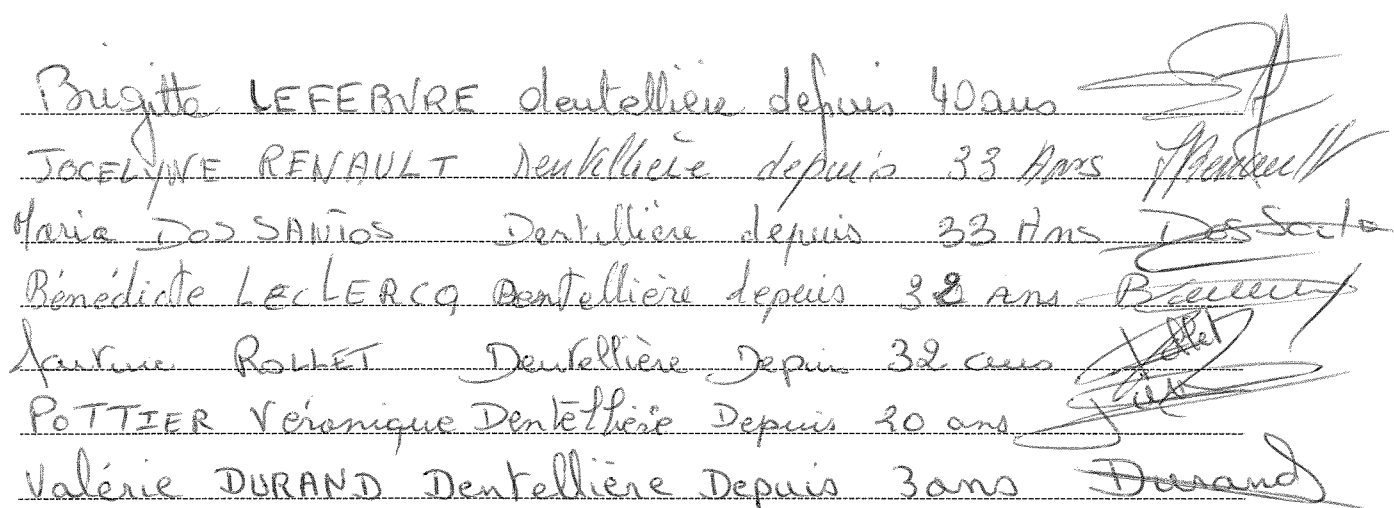 Brigitte LEFEBVRE dentellière depuis 40 ans
JOCELYNE RENAULT Dentellière depuis 33 Ans JRenault
Maria DOS SANTOS Dentellière depuis 33 Ans Dos Santo
Bénédicte LECLERCQ Dentellière depuis 32 ans
ROLLET Dentellière Depuis 32 ans Rollet
POTTIER Véronique Dentellière Depuis 20 ans
Valérie DURAND Dentellière Depuis 3 ans Durand